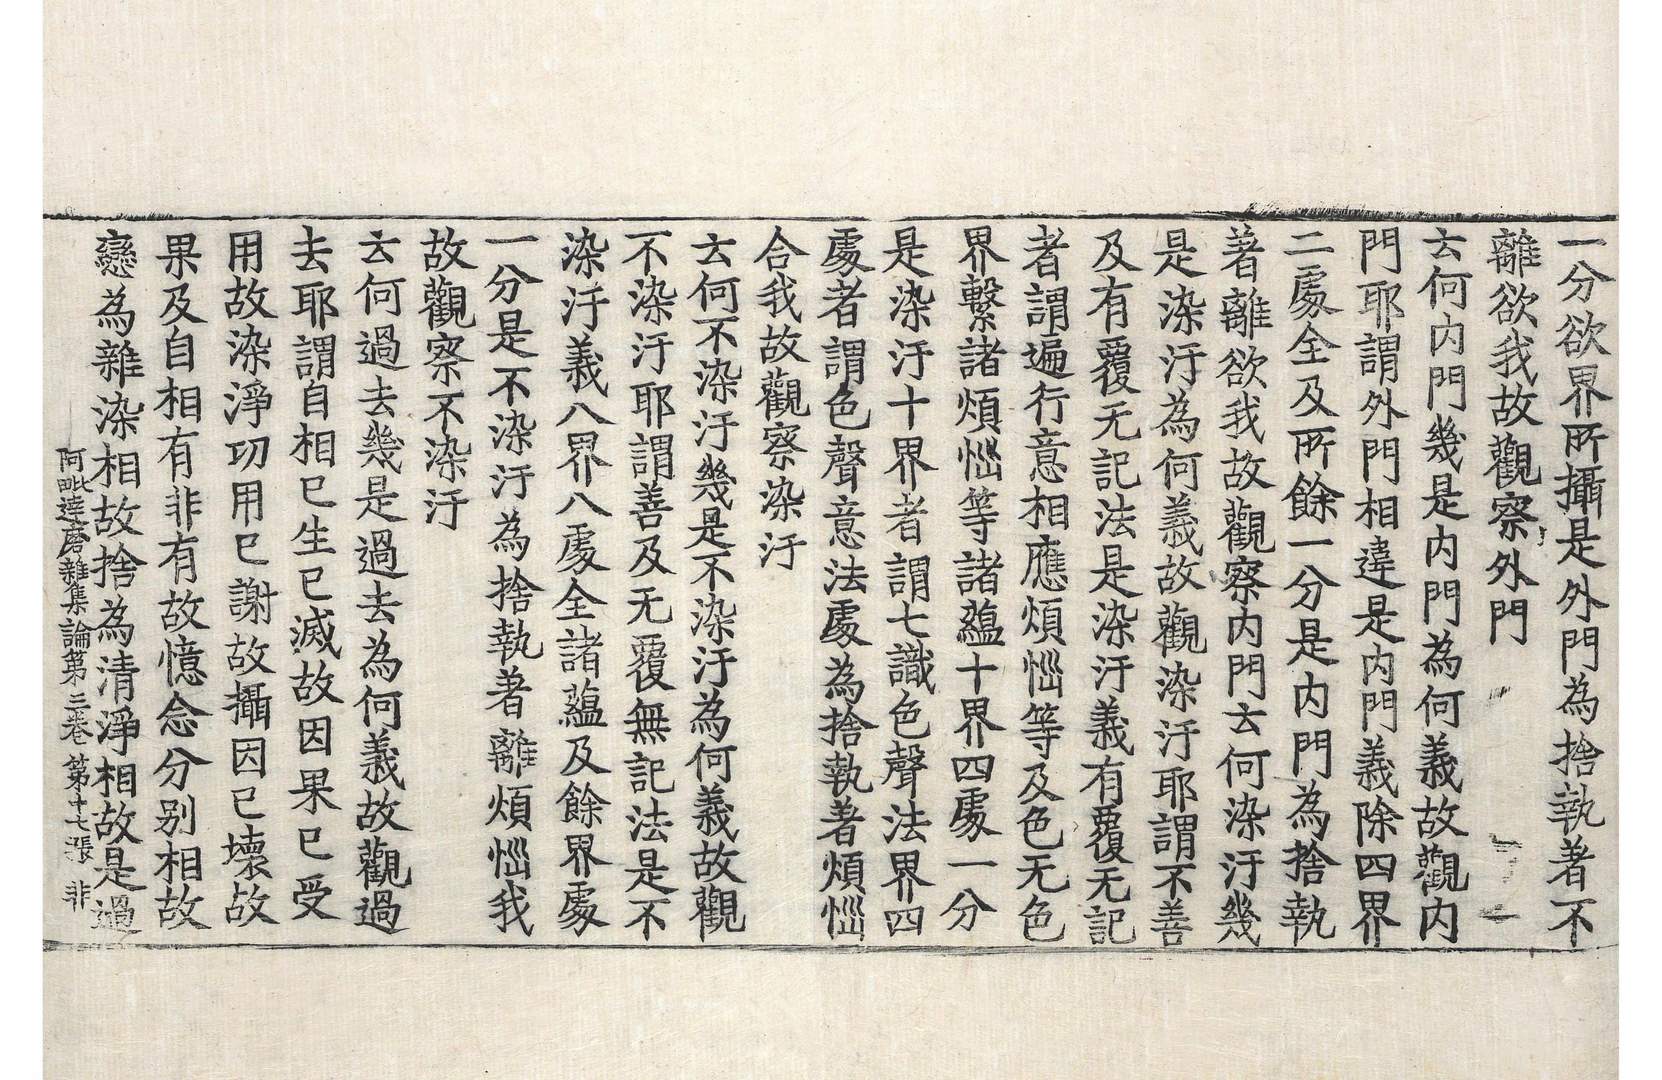 一分欲界所攝是外門為捨執著不
離欲我故觀察外門
云何内門幾是内門為何義故觀内
門耶謂外門相違是内門義除四界
二處全及所餘一分是内門為捨執
著離欲我故觀察内門云何染汙幾
是染汙為何義故觀染汙耶謂不善
及有覆无記法是染汙義有覆无記
者謂遍行意相應煩惱等及色无色
界繫諸煩惱等諸蘊十界四處一分
是染汙十界者謂七識色聲法界四
處者謂色聲意法處為捨執著煩惱
合我故觀察染汙
云何不染汙幾是不染汙為何義故觀
不染汙耶謂善及无覆無記法是不
染汙義八界八處全諸蘊及餘界處
一分是不染汙為捨執著離煩惱我
故觀察不染汙
云何過去幾是過去為何義故觀過
去耶謂自相已生已滅故因果已受
用故染淨功用已謝故攝因已壞故
果及自相有非有故憶念分別相故
戀為雜染相故捨為清淨相故是過
阿毗達磨雜集論第三卷 第十七張 非